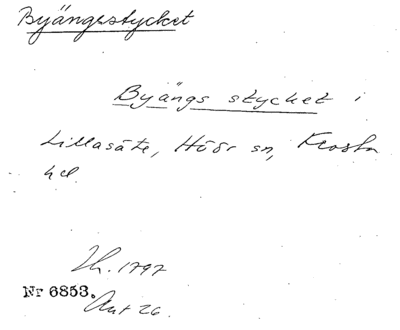 Byängestycket
Byängs stycket i
Lillasäte, Höör sn, Frosta
hd.
Th. 1797
Nr 6853.
Ant 26